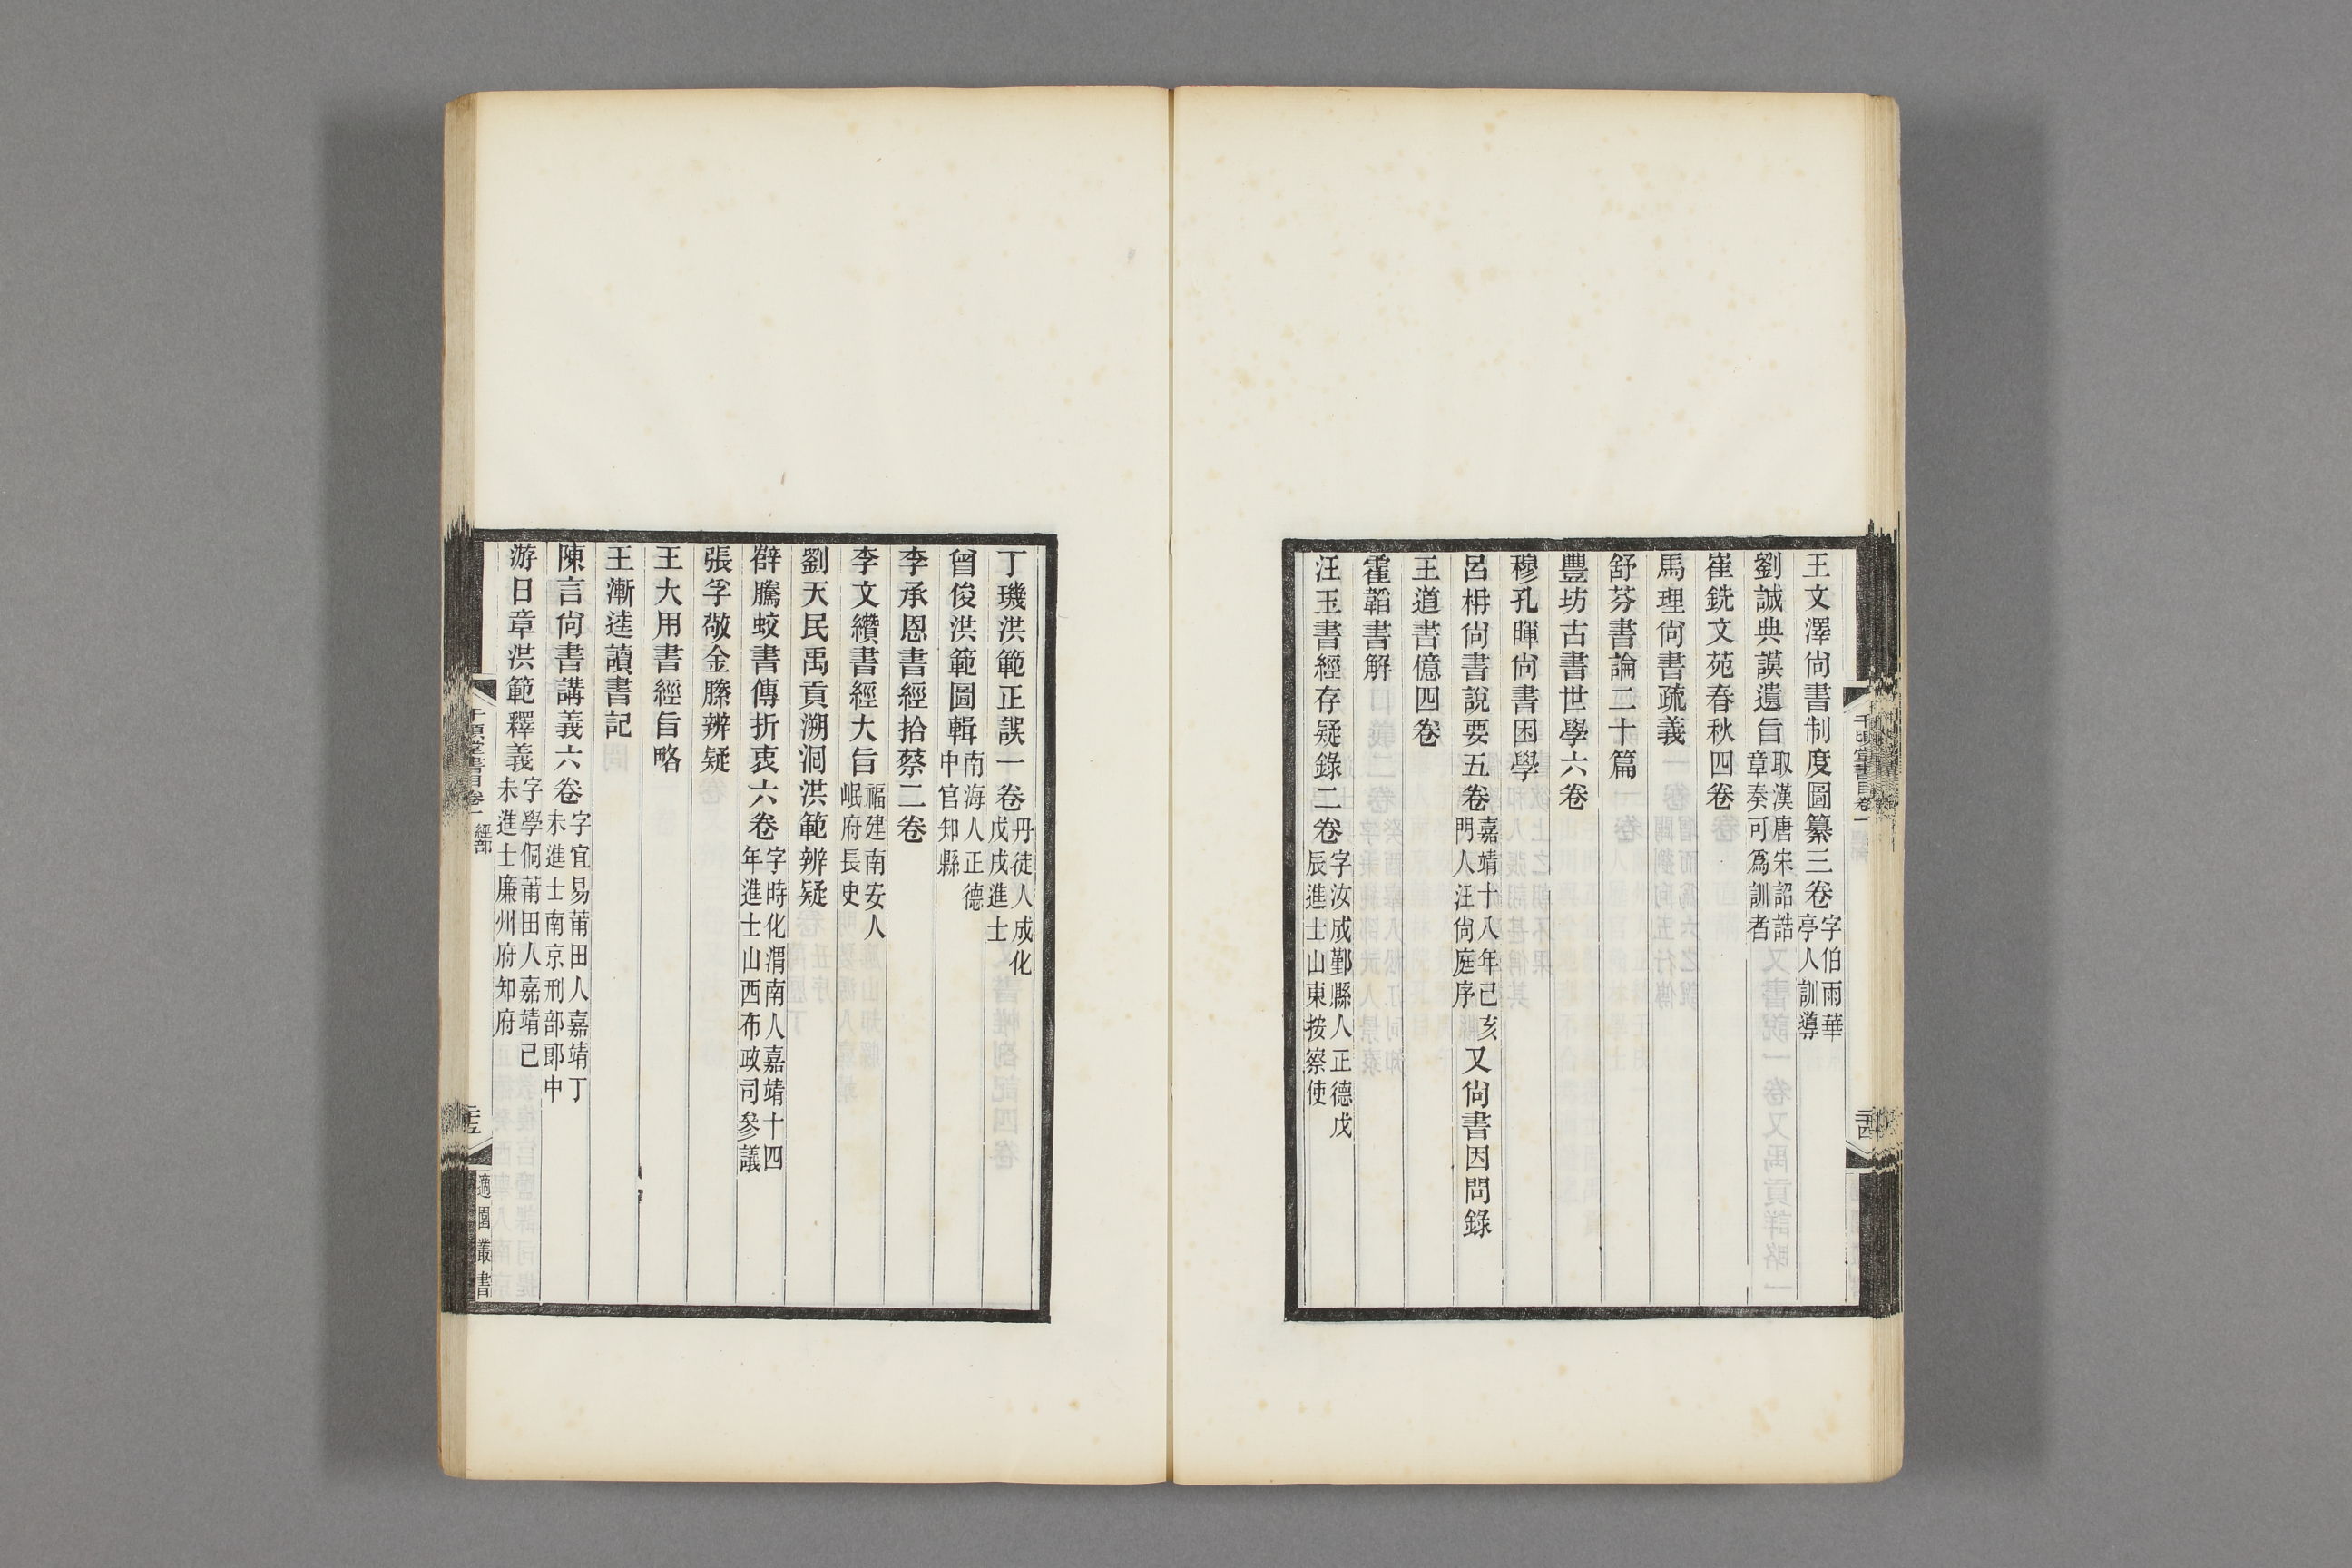 王文澤尙書制度圖纂三卷字伯雨華亭人訓導
劉誠典謨遺旨取漢唐宋詔誥章奏可爲訓者
崔銑文苑春秋四卷
馬理尙書疏義
舒芬書論二十篇
豐坊古書世學六卷
穆孔暉尙書困學
呂柟尙書說要五卷嘉靖十八年己亥門人汪尙庭序又尙書因問錄
王道書億四卷
霍韜書解
汪玉書經存疑錄二卷字汝成鄞縣人正德戊辰進士山東按察使
千頃堂書目卷一
二十四
丁璣洪範正誤一卷丹徒人成化戊戌進士
曾俊洪範圖輯南海人正德中官知縣
李承恩書經拾蔡二卷
李文纘書經大旨福建南安人岷府長史
劉天民禹貢溯洄洪範辨疑
薛騰蛟書傳折衷六卷字時化渭南人嘉靖十四年進士山西布政司參議
張孚敬金縢辨疑
王大用書經旨略
王漸逵讀書記
陳言尙書講義六卷字宜易莆田人嘉靖丁未進士南京刑部郎中
游日章洪範釋義字學侗莆田人嘉靖己未進士廉州府知府
千頃堂書目卷一 經部
二十五
適園叢書